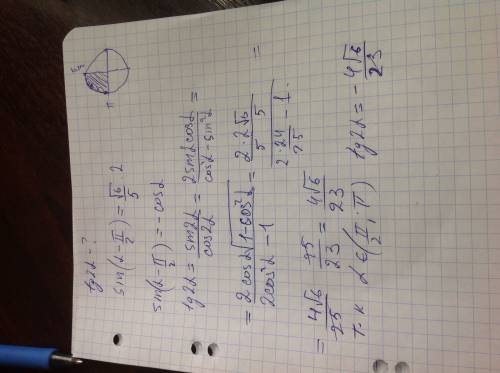 tg2α - ?
sin(α - π/2) = √6/5 · 2
sin(α - π/2) = -cosα
tg2α = sin2α/cos2α = 2sinαcosα/(cos²α - sin²α) =
= 2cosα√(1-cos²α)/(2cos²α - 1) = (2·2√6/5 · 5)/(2·24/25 - 1) =
= 4√6/25 · 25/23 = 4√6/23
т.к α∈(π/2; π) tg2α = -4√6/23
π/2
π